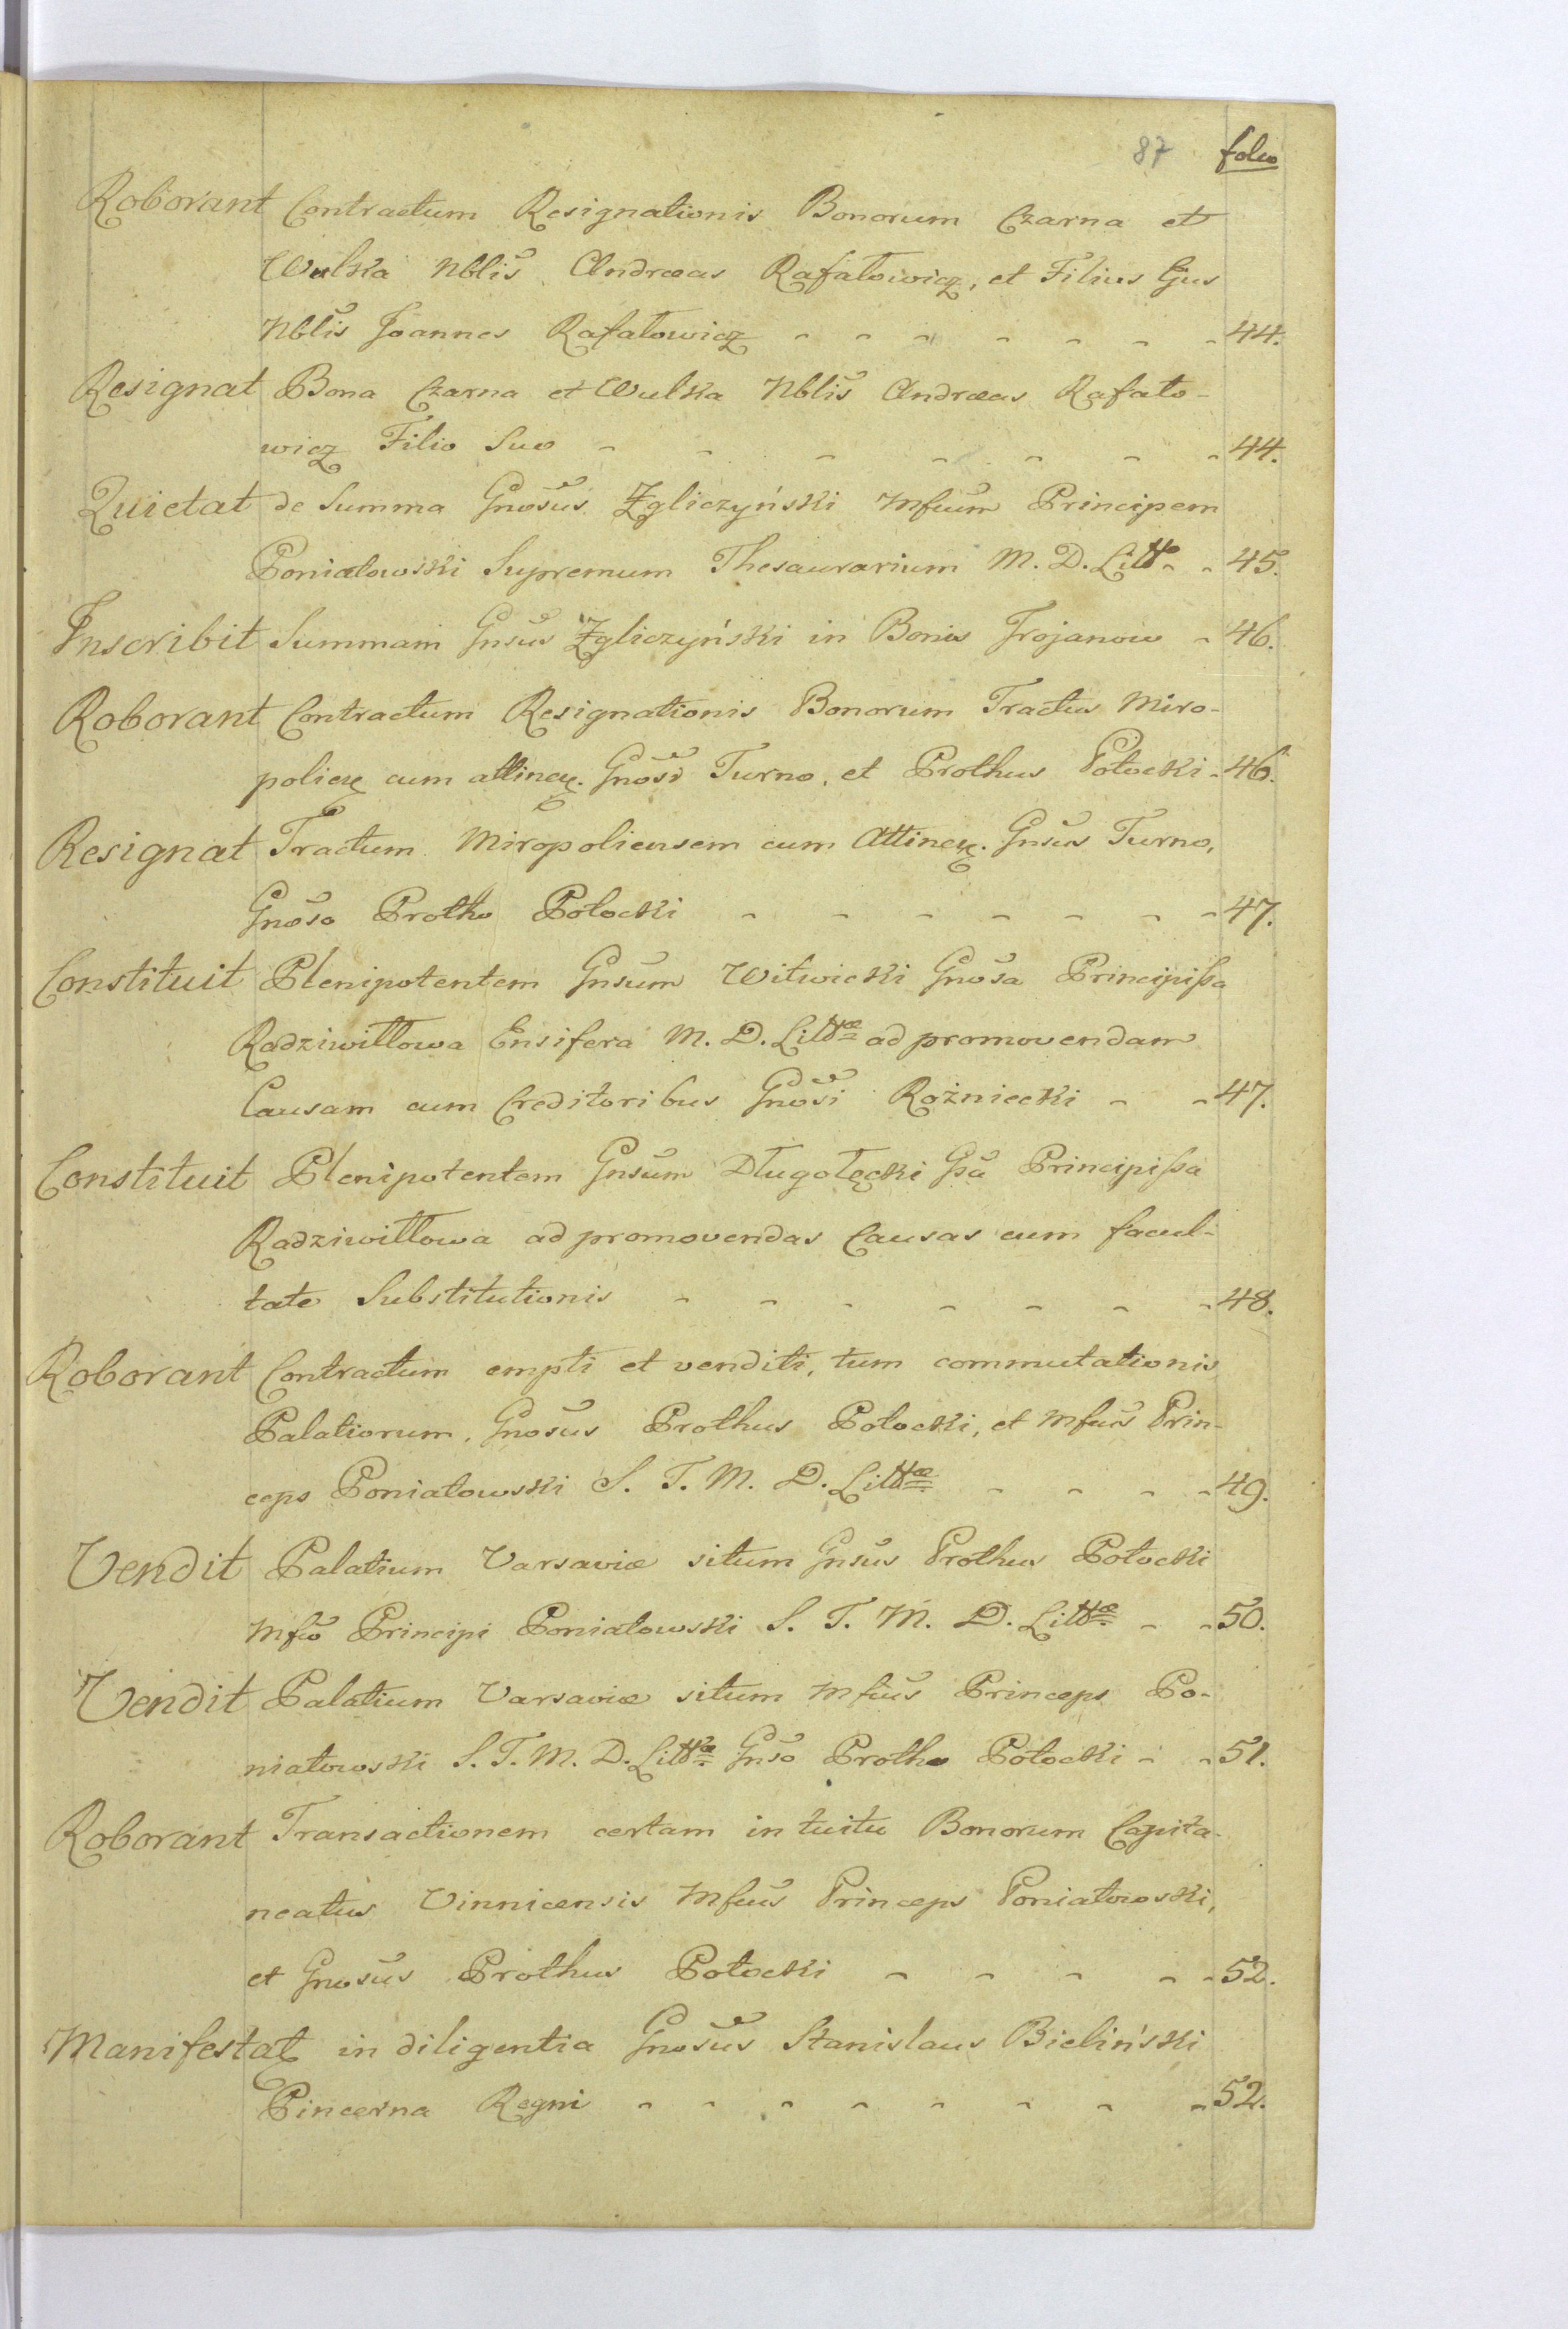 87 folio
Roborant Contractum Resignationis Bonorum Czarna et
Wulka Nblis Andræas Rafałowicz, et Filius Ejus
Nblis Joannes Rafałowicz - - - - - - - 44.
Resignat Bona Czarna et Wulka Nblis Andræas Rafało-
wicz Filio Suo - - - - - - - 44.
Quietat de Summa Gnosus Zgliczyński Mfcum Principem
Poniatowski Supremum Thesaurarium M. D. Litt - - 45.
Inscribit Summam Gnsus Zgliczyński in Bonis Trojanow - 46.
Roborant Contractum Resignationis Bonorum Tractus Miro-
polien cum attinen. Gnosi Turno, et Prothus Potocki - 46.
Resignat Tractum Miropoliensem cum Attinen. Gnsus Turno,
Gnoso Protho Potocki - - - - - - - 47.
Constituit Plenipotentem Gnsum Witwicki Gnosa Principissa
Radziwiłłowa Ensifera M. D. Littæ ad promovendam
Causam cum Creditoribus Gnosi Rożniecki - - 47.
Constituit Plenipotentem Gnsum Długołęcki Gsa Principissa
Radziwiłłowa ad promovendas Causas cum facul-
tate Substitutionis - - - - - - - 48.
Roborant Contractum empti et venditi, tum commutationis
Palatiorum, Gnosus Prothus Potocki, et Mfcus Prin-
ceps Poniatowski S. T. M. D. Littæ - - - - 49.
Vendit Palatium Varsaviæ situm Gnsus Prothus Potocki
Mfco Principi Poniatowski S. T. M. D. Littæ - - 50.
Vendit Palatium Varsaviæ situm Mfcus Princeps Po-
niatowski S. T. M. D. Littæ Gnso Protho Potocki - - 51.
Roborant Transactionem certam intuitu Bonorum Capita-
neatus Vinnicensis Mfcus Princeps Poniatowski,
et Gnosus Prothus Potocki - - - - - 52.
Manifestat in diligentia Gnosus Stanislaus Bieliński
Pincerna Regni - - - - - - - - 52.